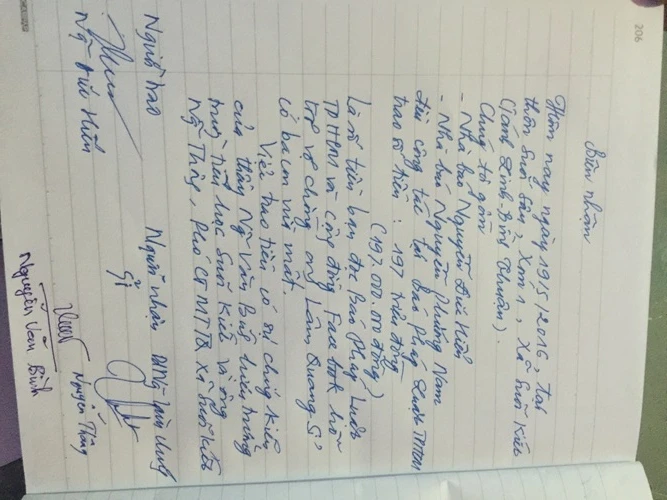 206
Biên nhận
Hôm nay ngày 19/5/2016, tại
thôn Suối Sâu, Xóm 1, Xã Suối Kiết
(Tánh Linh - Bình Thuận).
Chúng tôi gồm
- Nhà báo Nguyễn Đức Hiển
- Nhà báo Nguyễn Phương Nam
đều công tác tại báo Pháp Luật TPHCM
trao số tiền: 197 triệu đồng
(197.000.000 đồng)
Là số tiền bạn đọc Báo Pháp Luật
TPHCM và cộng đồng Facebook hỗ
trợ vợ chồng ông Lâm Quang Sị,
có ba con mới mất.
Việc trao tiền có sự chứng kiến
của thầy Ng Văn Bình hiệu trưởng
trường tiểu học Suối Kiết và ông
Ng Thông, Phó CT MTTQ xã Suối Kiết
Người trao
Ng Đức Hiển
Người nhận
Sị
Nguyễn Thông
Nguyễn Văn Bình